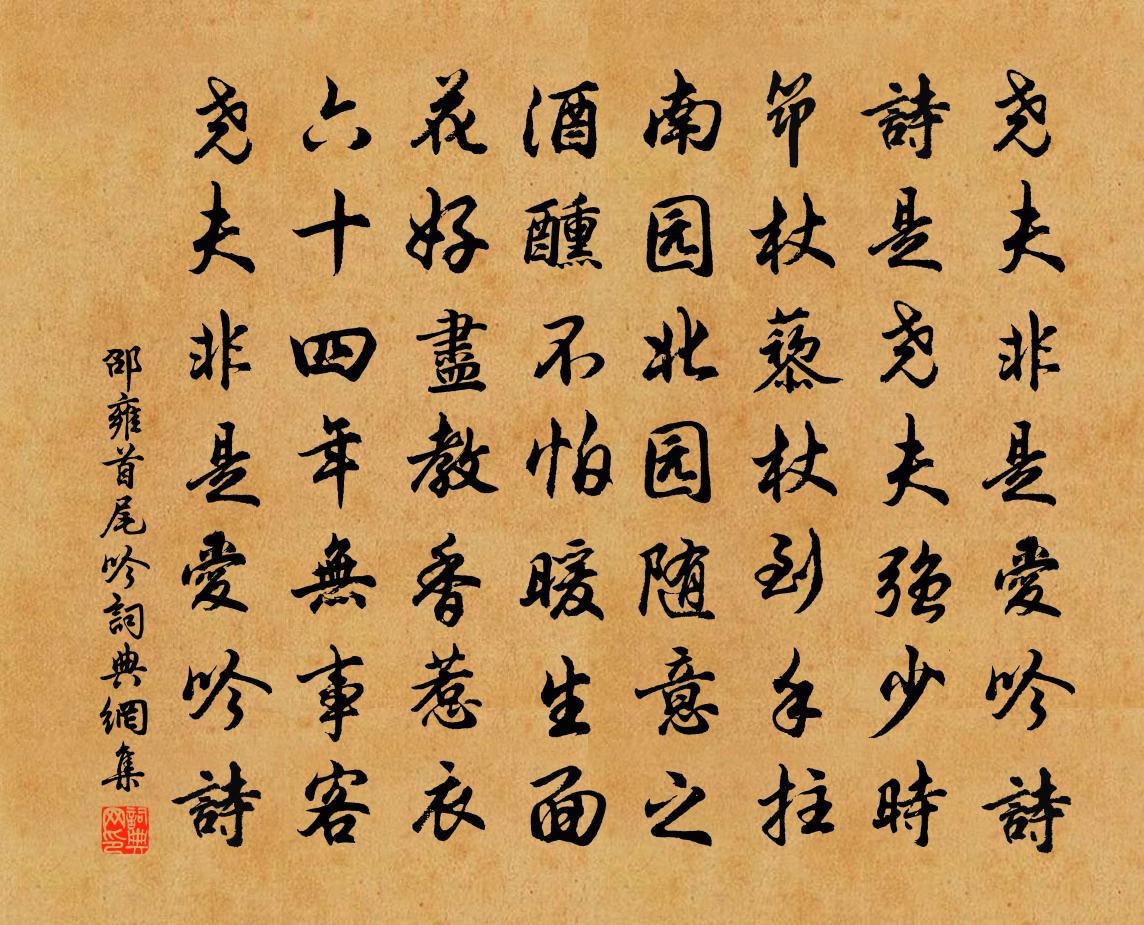 尧夫非是愛吟詩
詩是尧夫強少時
筇杖藜杖到手拄
南园北园随意之
酒醺不怕暖生面
花好盡教香惹衣
六十四年無事客
尧夫非是愛吟詩
邵雍首尾吟詞典網集
詞典网印